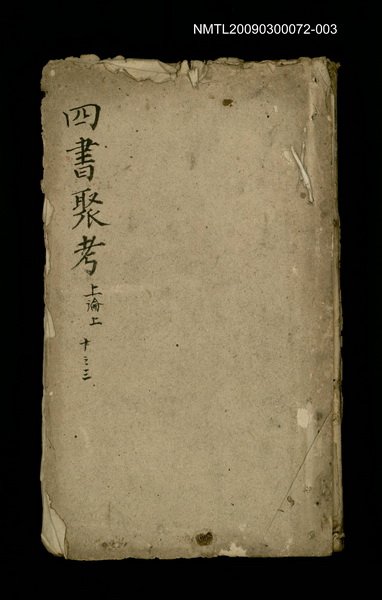 NMTL20090300072-003
四書聚考
上論上
十之三